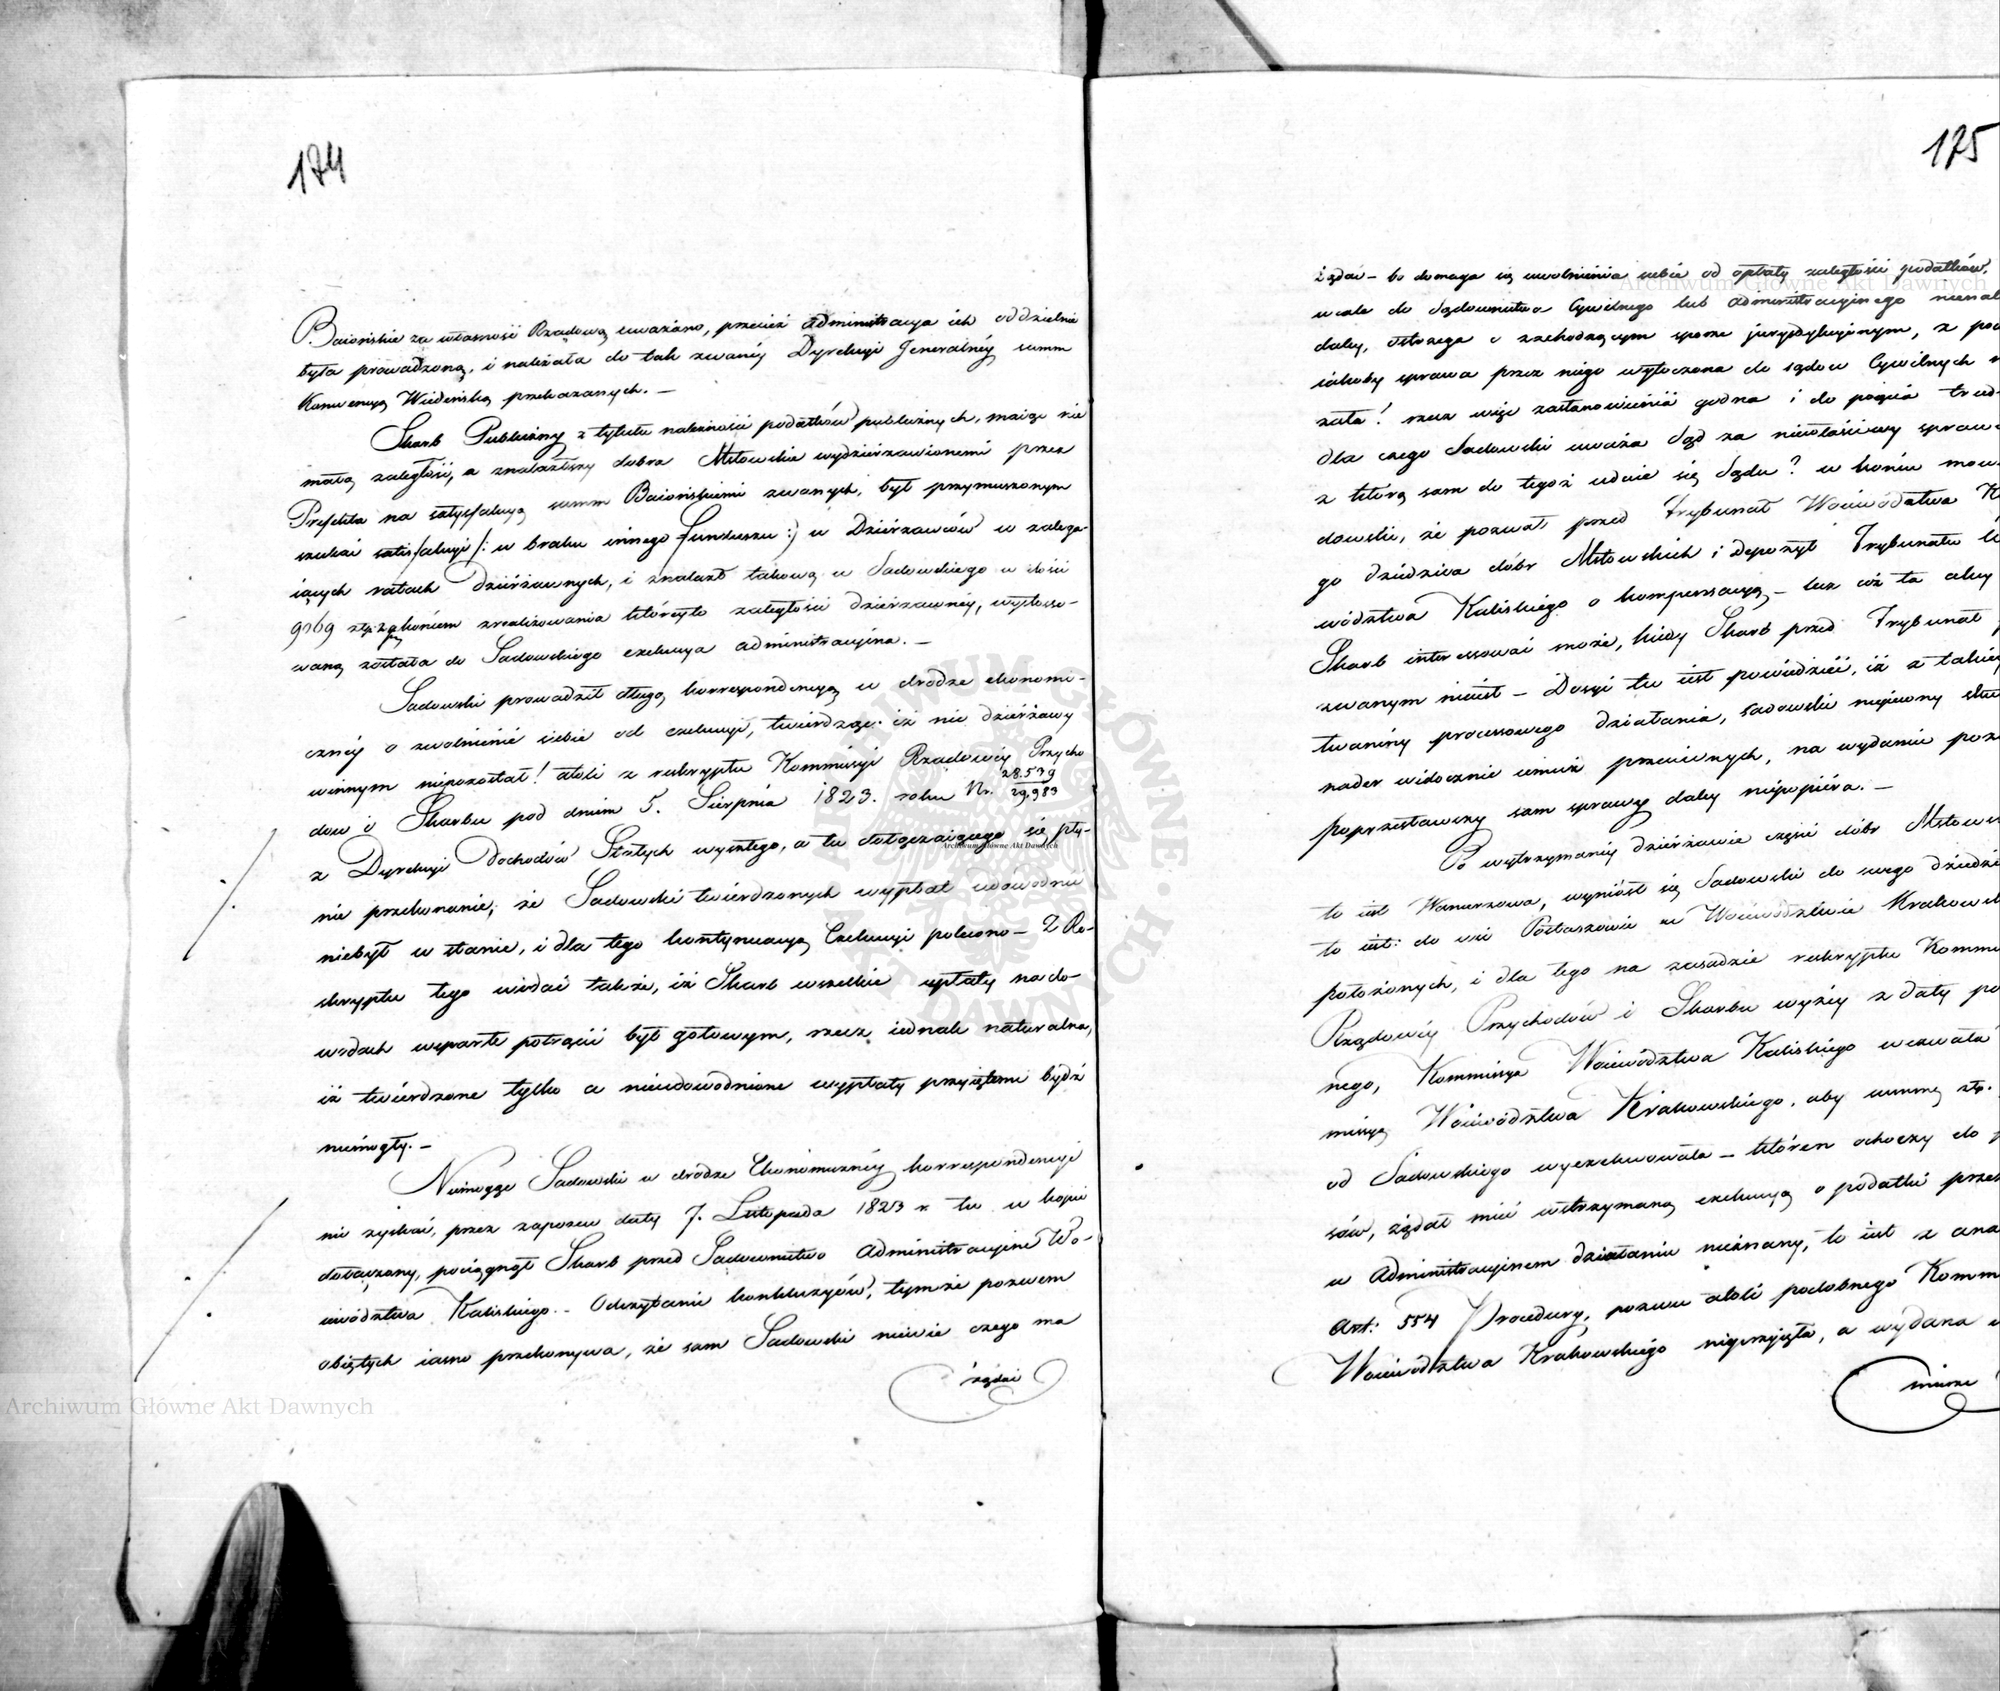 174
Baiońskie za własność Rządową uważano, przecież administracya ich oddzielnie
była prowadzoną, i należała do tak zwanéy Dyrekcyi Jeneralnéy summ
Konwencyą Wiedeńską przekazanych. —
Skarb Publiczny z tytułu należności podatków publicznych, maiąc nie
małą zaległość, a znalazłszy dobra Mstowskie wydzierżawionemi przez
Prefekta na satysfakcyą summ Baiońskiemi zwanych, był przymuszonym
szukać satisfakcyi /: w braku innego funduszu :/ u Dzierżawców w zalega-
iących ratach dzierżawnych, i znalazł takową u Sadowskiego w ilości
9069 złp: końcem zrealizowania któréyto zaległości dzierżawnéy, wystoso-
waną została do Sadowskiego exekucya administracyina. —
Sadowski prowadził długą korrespondencyą w drodze ekonomi-
cznéy o zwolnienie siebie od exekucyi, twierdząc: iż nic dzierżawy
winnym niepozostał! atoli z reskryptu Kommissyi Rządowéy Przycho
dow i Skarbu pod dniem 5. Sierpnia 1823. roku Nr. 28.579/29,983
z Dyrekcyi Dochodów Stałych wyszłego, a tu dołączaiącego się pły-
nie przekonanie, że Sadowski twierdzonych wypłat udowodnić
niebył w stanie, i dla tego kontynuacyą Exekucyi polecono — Z Re-
skryptu tego widać także, iż Skarb wszelkie wpłaty na do-
wodach wsparte potrącić był gotowym, rzecz iednak naturalna,
iż twierdzone tylko a nieudowodnione wypłaty przyiętemi bydź
niemogły. —
Niemogąc Sadowski w drodze Ekonomicznéy korrespondencyi
nic zyskać, przez zapozew daty 7. Listopada 1823 r. tu w kopii
dołączony, pociągnął Skarb przed Sądownictwo Administracyine Wo-
iewództwa Kaliskiego. — Odczytanie konkluzyów, tymże pozwem
obiętych iasno przekonywa, że sam Sadowski niewie czego ma
żądać
175
żądać — bo domaga się uwolnienia siebie od opłaty zaległości podatków,
wcale do Sądownictwa Cywilnego lub Administracyinego nienal
daléy, ostrzega o zachodzącym sporze juryzdykcyinym, z po
iakoby sprawa przez niego wytoczona do sądow Cywilnych
żała! rzecz więc zastanowienia godna i do poięcia trud
dla czego Sadowski uważa Sąd za niewłaściwy spraw
z którą sam do tegoż udaie się Sądu? w końcu mow
dowski, że pozwał przed Trybunał Woiewództwa K
go dziedzica dóbr Mstowskich i depozyt Trybunału
wództwa Kaliskiego o kompensacyą — lecz cóż to aby
Skarb interessować może, kiedy Skarb przed Trybunał
zwanym nieiest — Dosyć tu iest powiedzieć, iż z takiéy
twaniny processowego działania, Sadowski niepewny sku
nader widocznie umuż przeciwnych, na wydaniu poz
poprzestawszy sam sprawy daléy niepopiéra. —
Po wytrzymaniéy dzierżawie części dóbr Mstow
to iest Wancerzowa, wyniósł się Sadowski do swego dziedzi
to iest: do wsi Postaszowic w Woiewództwie Krakows
położonych, i dla tego na zasadzie reskryptu Kommi
Rządowéy Przychodów i Skarbu wyżéy z daty po
nego, Kommissya Woiewództwa Kaliskiego wezwała
missyą Woiewództwa Krakowskiego, aby summę złp.
od Sadowskiego wyexekwowała — któren ochoczy do
sów, żądał mieć wstrzymaną exekucyą o podatki prze
w Administracyinem działaniu nieznany, to iest z ana
Art: 554 Procedury, pozwu atoli podobnego Komm
Woiewództwa Krakowskiego nieprzyięła, a wydana